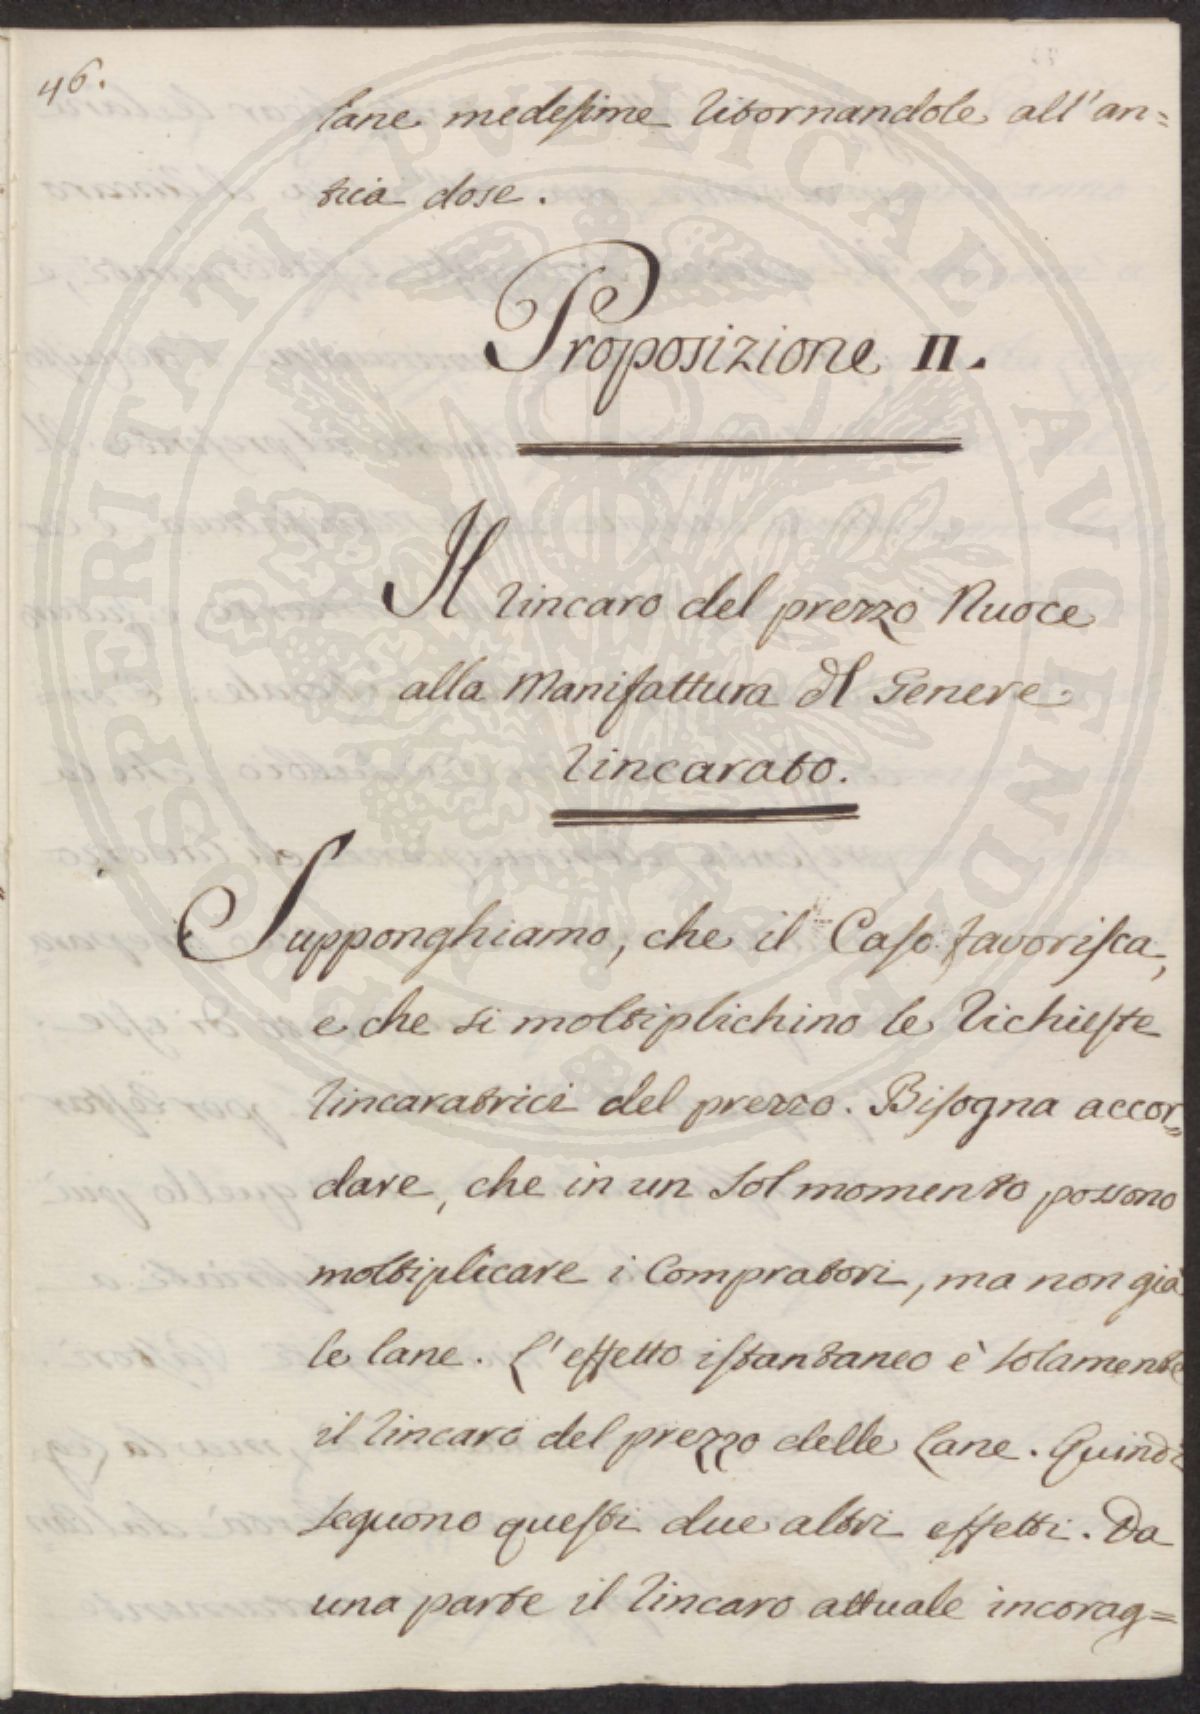 46.
lane medesime ritornandole all'an=
tica dose.
Proposizione II.
Il rincaro del prezzo Nuoce
alla Manifattura dl Genere
rincarato.
Supponghiamo, che il Caso favorisca,
e che si moltiplichino le richieste
rincaratrici del prezzo. Bisogna accor=
dare, che in un sol momento possono
moltiplicare i Compratori, ma non già
le lane. L'effetto istantaneo è solamente
il rincaro del prezzo delle lane. Quindi
seguono questi due altri effetti. Da
una parte il rincaro attuale incorag=
PROSPERITATI PUBLICAE AVGENDAE